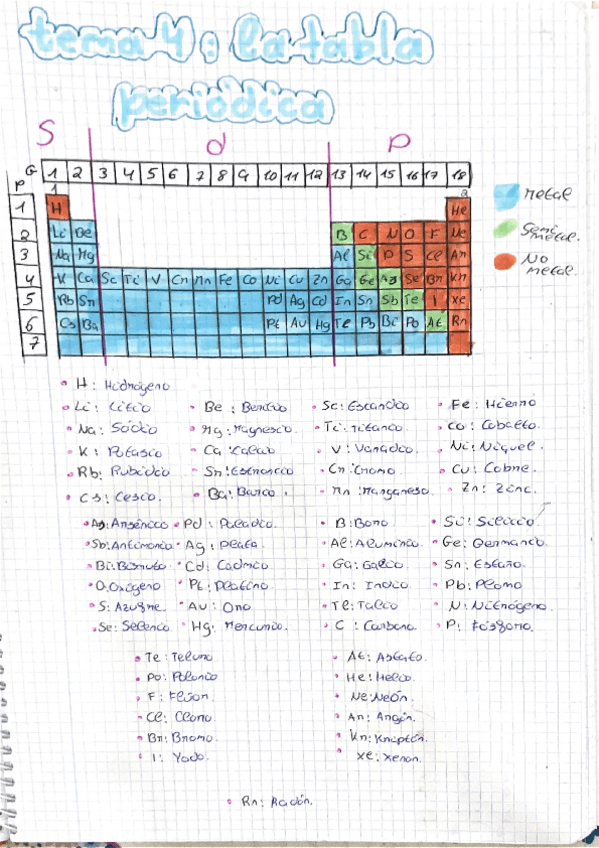 tema 4: la tabla
periódica
S d P
G 1 2 3 4 5 6 7 8 9 10 11 12 13 14 15 16 17 18
P 1 2
1 H He
2 Li Be B C N O F Ne
3 Na Mg Al Si P S Cl Ar
4 K Ca Sc Ti V Cr Mn Fe Co Ni Cu Zn Ga Ge As Se Br Kr
5 Rb Sr Pd Ag Cd In Sn Sb Te I Xe
6 Cs Ba Pt Au Hg Tl Pb Bi Po At Rn
7
metal
Semi
metal.
No
metal.
• H: Hidrógeno
• Li: Litio • Be: Berilio • Sc: Escandio • Fe: Hierro
• Na: Sódio • Mg: Magnesio. • Ti: Titanio. • Co: Cobalto.
• K: Potasio • Ca: Calcio • V: Vanadio. • Ni: Niquel.
• Rb: Rubidio • Sr: Estroncio • Cr: Cromo. • Cu: Cobre.
• Cs: Cesio. • Ba: Bario. • Mn: Manganeso. • Zn: Zinc.
• As: Arsénico • Pd: Paladio. • B: Boro. • Si: Silicio
• Sb: Antimonio • Ag: Plata. • Al: Aluminio. • Ge: Germanio.
• Bi: Bismuto • Cd: Cadmio • Ga: Galio. • Sn: Estaño.
• O: Oxígeno • Pt: Platino • In: Indio • Pb: Plomo
• S: Azufre. • Au: Oro • Tl: Talio • N: Nitrógeno.
• Se: Selenio • Hg: Mercurio. • C: Carbono. • P: Fósforo.
• Te: Teluro • At: Astato.
• Po: Polonio • He: Helio.
• F: Flúor. • Ne: Neón.
• Cl: Cloro. • Ar: Argón.
• Br: Bromo. • Kr: Kriptón.
• I: Yodo. • Xe: Xenon.
• Rn: Radón.